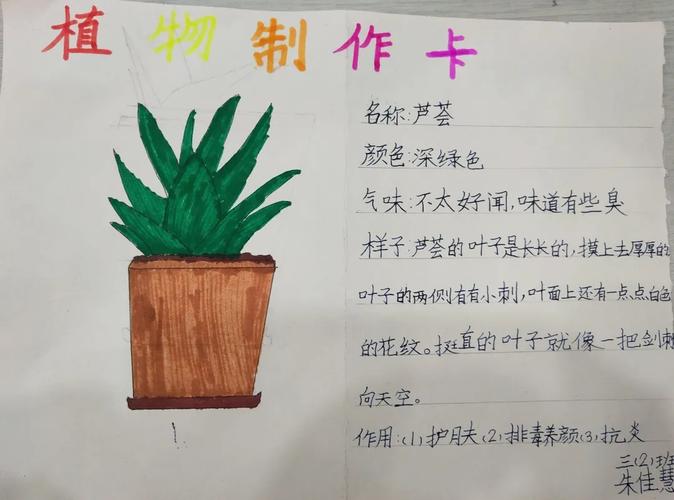 植物制作卡
名称:芦荟
颜色:深绿色
气味:不太好闻,味道有些臭
样子:芦荟的叶子是长长的,摸上去厚厚的
叶子的两侧有有小刺,叶面上还有一点点白色
的花纹。挺直的叶子就像一把剑刺
向天空。
作用:(1)护肤(2)排毒养颜(3)抗炎
三(2)班
朱佳慧